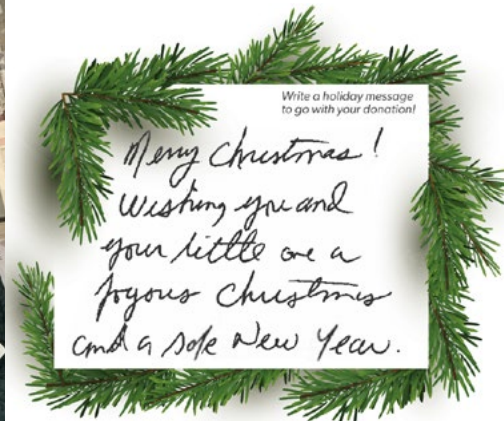 Write a holiday message
to go with your donation!
Merry Christmas!
Wishing you and
your little one a
joyous Christmas
and a safe New Year.